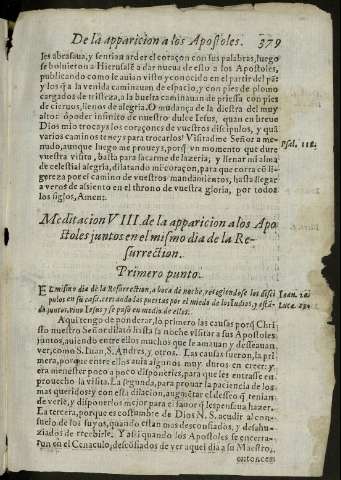 De la apparicion a los Apostoles. 379
les abrasaua, y sentian arder el coraçon con sus palabras, luego
se boluieron a Hierusalẽ a dar nueua de esto a los Apostoles,
publicando como le auian visto y conocido en el partir del pã:
y los q̃ a la venida caminauan de espacio, y con pies de plomo
cargados de tristeza, a la buelta caminauan de priessa con pies
de cieruos, llenos de alegria. O mudança de la diestra del muy
alto: ò poder infinito de nuestro dulce Iesus, quan en breue
Dios mio trocays los coraçones de vuestros discipulos, y quã
varios caminos teneys para trocarlos! Visitadme Señor a me-
nudo, aunque luego me proueys, porq̃ vn momento que dure
vuestra visita, basta para sacarme de lazeria, y llenar mi alma
de celestial alegria, dilatando mi coraçon, para que corra cõ li-
gereza por el camino de vuestros mandamientos, hasta llegar
a veros de assiento en el throno de vuestra gloria, por todos
los siglos, Amen.
Psal. 118.
Meditacion VIII. de la apparicion a los Apo
stoles juntos en el mismo dia de la Re-
surrection.
Primero punto.
El mismo dia de la Resurrection, a boca de noche, recogiendose los disci
pulos en su casa, cerrando las puertas por el miedo de los Iudios, y estã-
do juntos, vino Iesus y se puso en medio de ellos.
Ioan. 20
Luca. 24
Aqui tengo de ponderar, lo primero las causas porq̃ Chri-
sto nuestro Señor dilatò hasta la noche visitar a sus Apostoles
juntos, auiendo entre ellos muchos que le amauan y desseauan
ver, como S. Iuan, S. Andres, y otros. Las causas fueron, la pri-
mera, porque entre ellos auia algunos muy duros en creer: y
era menester poco a poco disponerles, para que les entrasse en
prouecho la visita. La segunda, para prouar la paciencia de los
mas queridos: y con esta dilacion, augmẽtar el desseo q̃ tenian
de verle, y disponerlos mejor para el fauor q̃ les pensaua hazer.
La tercera, porque es costumbre de Dios N. S. acudir al con-
suelo de los suyos, quando estan mas desconfiados, y desahu-
ziados de recebirle. Y assi quando los Apostoles se encerra-
ron en el Cenaculo, descõfiados de ver aquel dia a su Maestro,
entonces